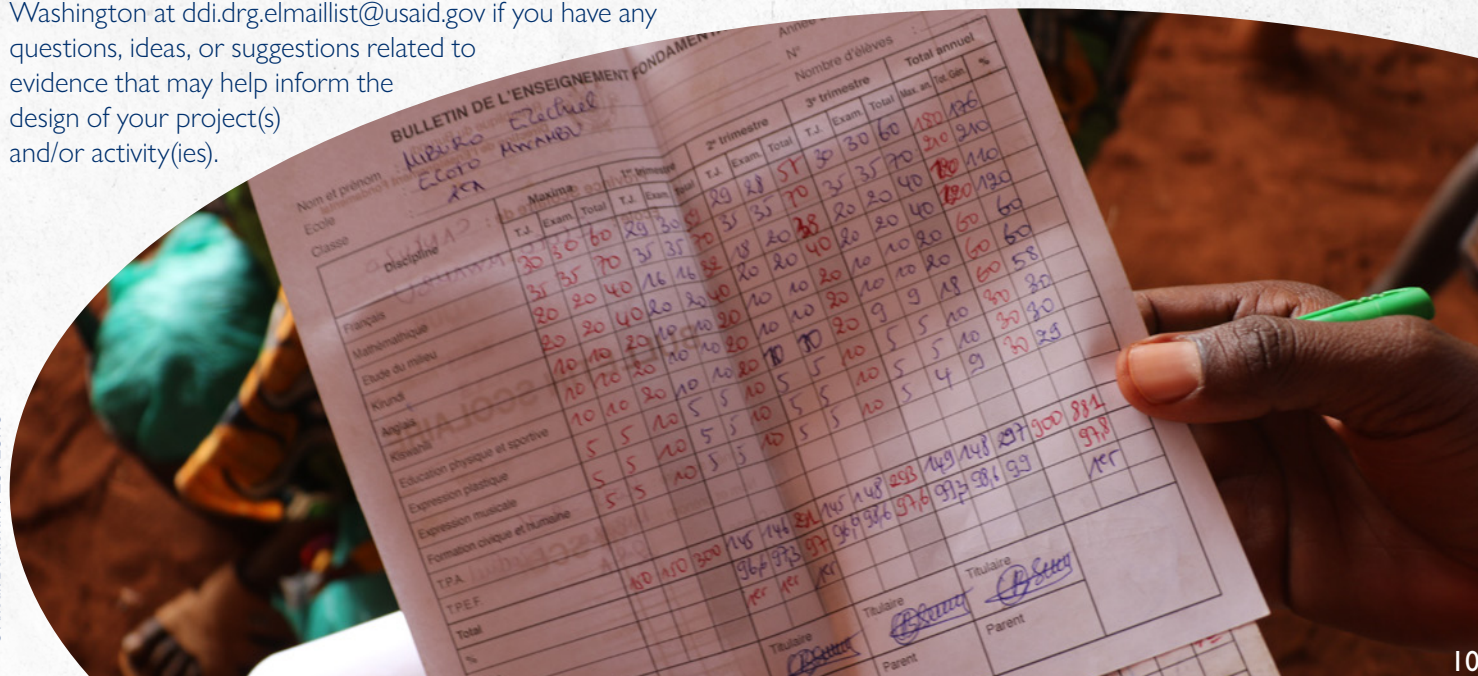 Washington at ddi.drg.elmaillist@usaid.gov if you have any
questions, ideas, or suggestions related to
evidence that may help inform the
design of your project(s)
and/or activity(ies).
BULLETIN DE L'ENSEIGNEMENT
Année
N°
Nombre d'élèves :
Nom et prénom : Ezechiel
Ecole
Classe
Discipline Maxima 1er trimestre 2e trimestre 3e trimestre Total annuel
T.J. Exam. Total T.J. Exam. Total T.J. Exam. Total T.J. Exam. Total Max. an. Tot. Gén. %
Français 30 30 60 29 30 59 29 28 57 30 30 60 180 176
Mathématique 35 35 70 35 35 70 35 35 70 35 35 70 210 210
Etude du milieu 20 20 40 16 16 32 18 20 38 20 20 40 120 110
Kirundi 20 20 40 20 20 40 20 20 40 20 20 40 120 120
Anglais 10 10 20 10 10 20 10 10 20 10 10 20 60 60
Kiswahili 10 10 20 10 10 20 10 10 20 10 10 20 60 60
Education physique et sportive 10 10 20 10 10 20 10 10 20 9 9 18 60 58
Expression plastique 5 5 10 5 5 10 5 5 10 5 5 10 30 30
Expression musicale 5 5 10 5 5 10 5 5 10 5 5 10 30 30
Formation civique et humaine 5 5 10 5 5 10 5 5 10 5 4 9 30 29
T.P.A.
T.P.E.F.
Total 150 150 300 145 146 291 145 148 293 149 148 297 900 881
% 96,6 97,3 97 96,6 98,6 97,6 99,3 98,6 99 97,8
1er 1er 1er 1er
Titulaire Titulaire Titulaire
Parent Parent
10